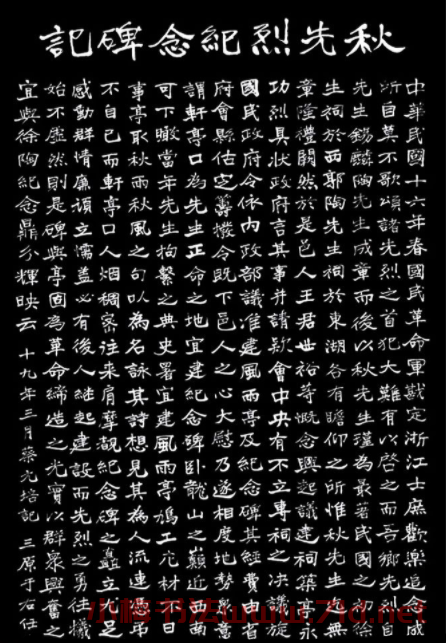 秋先烈紀念碑記
中華民國十六年春國民革命軍戡定浙江士庶歡樂造成
所自莫不歌頌諸先烈之首犯大難有以啟之而吾鄉先烈自
先生錫麟陶先生成章而後以秋先生瑾為最著民國之初
生祠於西郭陶先生祠於東湖各有瞻仰之所惟秋先生久無
章隆禮闕然於是邑人王君世裕等慨念興起議建祠築亭永
功烈具狀政府言其事并請款會中央有不立專祠之決議旋
國民政府令依內政部議准建風雨亭及紀念碑其經費由省
府會縣估定籌撥令既下邑人之心大慰乃遂相度地勢僉
謂軒亭口為先生正命之地宜建紀念碑臥龍山之巔近西南
可下瞰當年先生拘繫之典史署宜建風雨亭鳩工庀材不日
事亭取秋雨秋風之句以為名詠其詩想見其為人流連弔
不自已而軒亭口人烟稠密往來肩摩覩紀念碑之矗立尤足
感動群情廉頑立懦蓋必有後人繼起建設而先烈之勇往犧
始不虛然則是碑與亭固為革命締造之光實以群眾興奮之
宜與徐陶紀念鼎分輝映云 十九年三月蔡元培記 三原于右任
小楷书法www.71d.net